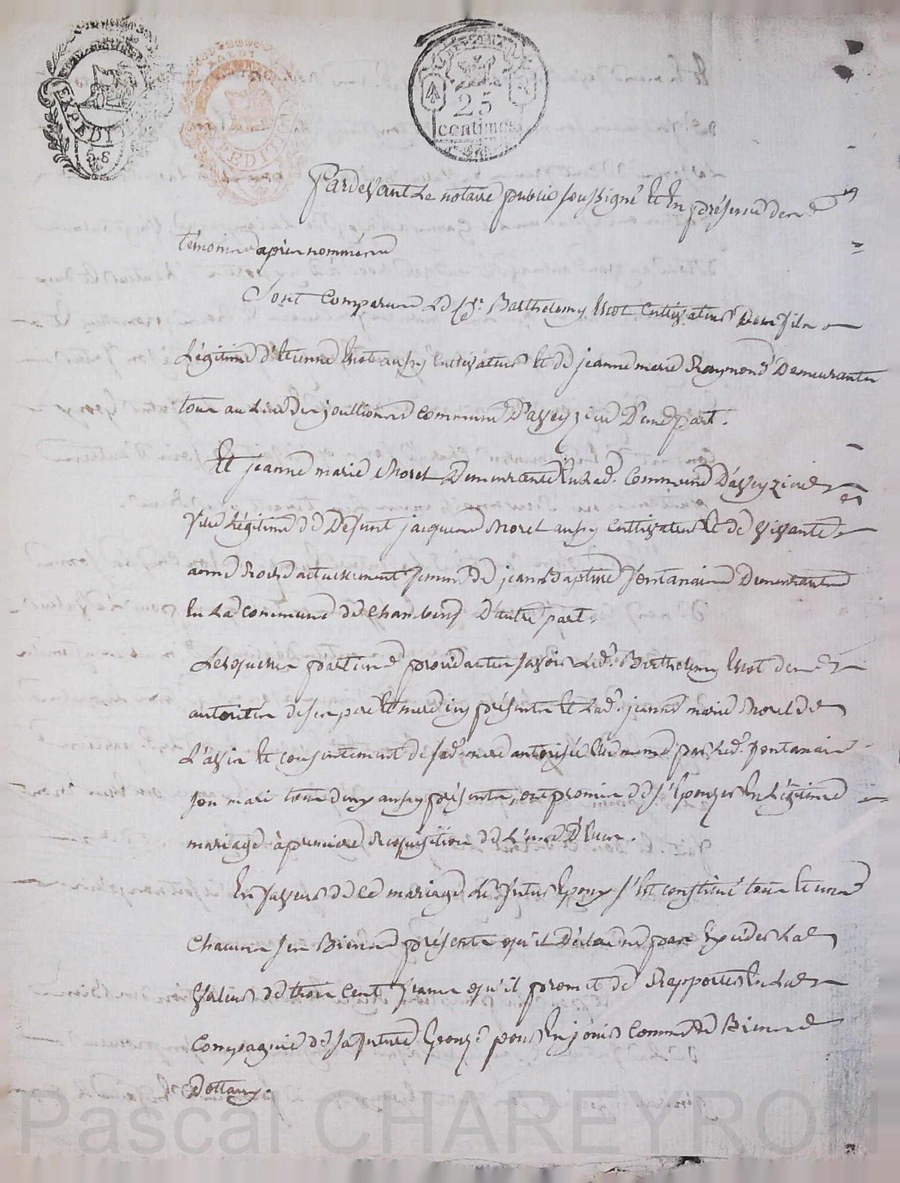 EXPEDIT
EXPEDIT
25
centimes
Pardevant Le notaire public soussigné et En présence des
témoins après nommés
Sont Comparus Barthelemy Cultivateur fils
Légitime d'Etienne aussy Cultivateur et de jeanne marie Raymond Demeurantes
tous au Lieu des Commune D'une part.
Et jeanne marie Morel Demeurante Commune
fille Légitime de Deffunt jacques Morel aussy Cultivateur et de vivante
actuellement femme de jean Baptiste fontanaise Demeurantes
En La commune de Chambeuf D'autre part.
Lesquelles parties procédantes savoir Led. Barthelemy
autorités de ses père et mere icy présents et Lad. jeanne marie Morel de
L'avis et consentement de sad. mere autorisée Elle même par Led. fontanaise
son mari tous deux aussy présents, ont promis de s'Epouser En Légitime
mariage à premiere Requisition de L'une D'Eux.
En faveur de Ce mariage Le futur Epoux s'Est constitué tous et uns
Chacuns ses Biens présents qu'il Déclare Exceder La
Valeur de trois cent francs qu'il promet de Rapporter En La
Compagnie de sa future Epouse pour En jouir Comme de Biens
Dottaux.
Pascal CHAREYRON